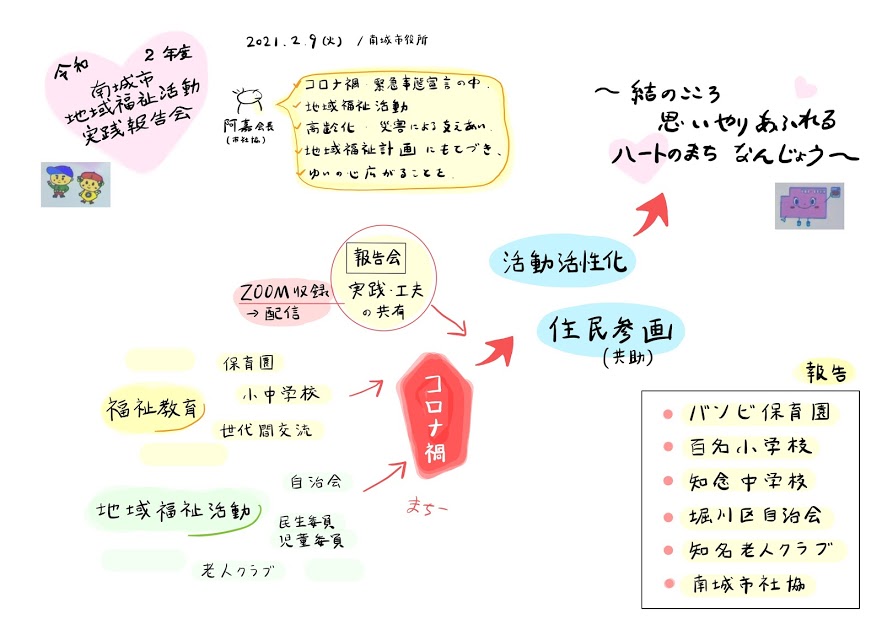 2021.2.9(火) / 南城市役所
令和 2年度
南城市
地域福祉活動
実践報告会
阿嘉会長
(市社協)
コロナ禍・緊急事態宣言の中、
地域福祉活動
高齢化・災害による支えあい、
地域福祉計画にもとづき、
ゆいの心広がることを、
〜結のこころ
思いやりあふれる
ハートのまち なんじょう〜
活動活性化
住民参画
(共助)
報告会
実践・工夫
の共有
ZOOM収録
→配信
コロナ禍
まちー
福祉教育
保育園
小中学校
世代間交流
地域福祉活動
自治会
民生委員
児童委員
老人クラブ
報告
バンビ保育園
百名小学校
知念中学校
堀川区自治会
知名老人クラブ
南城市社協